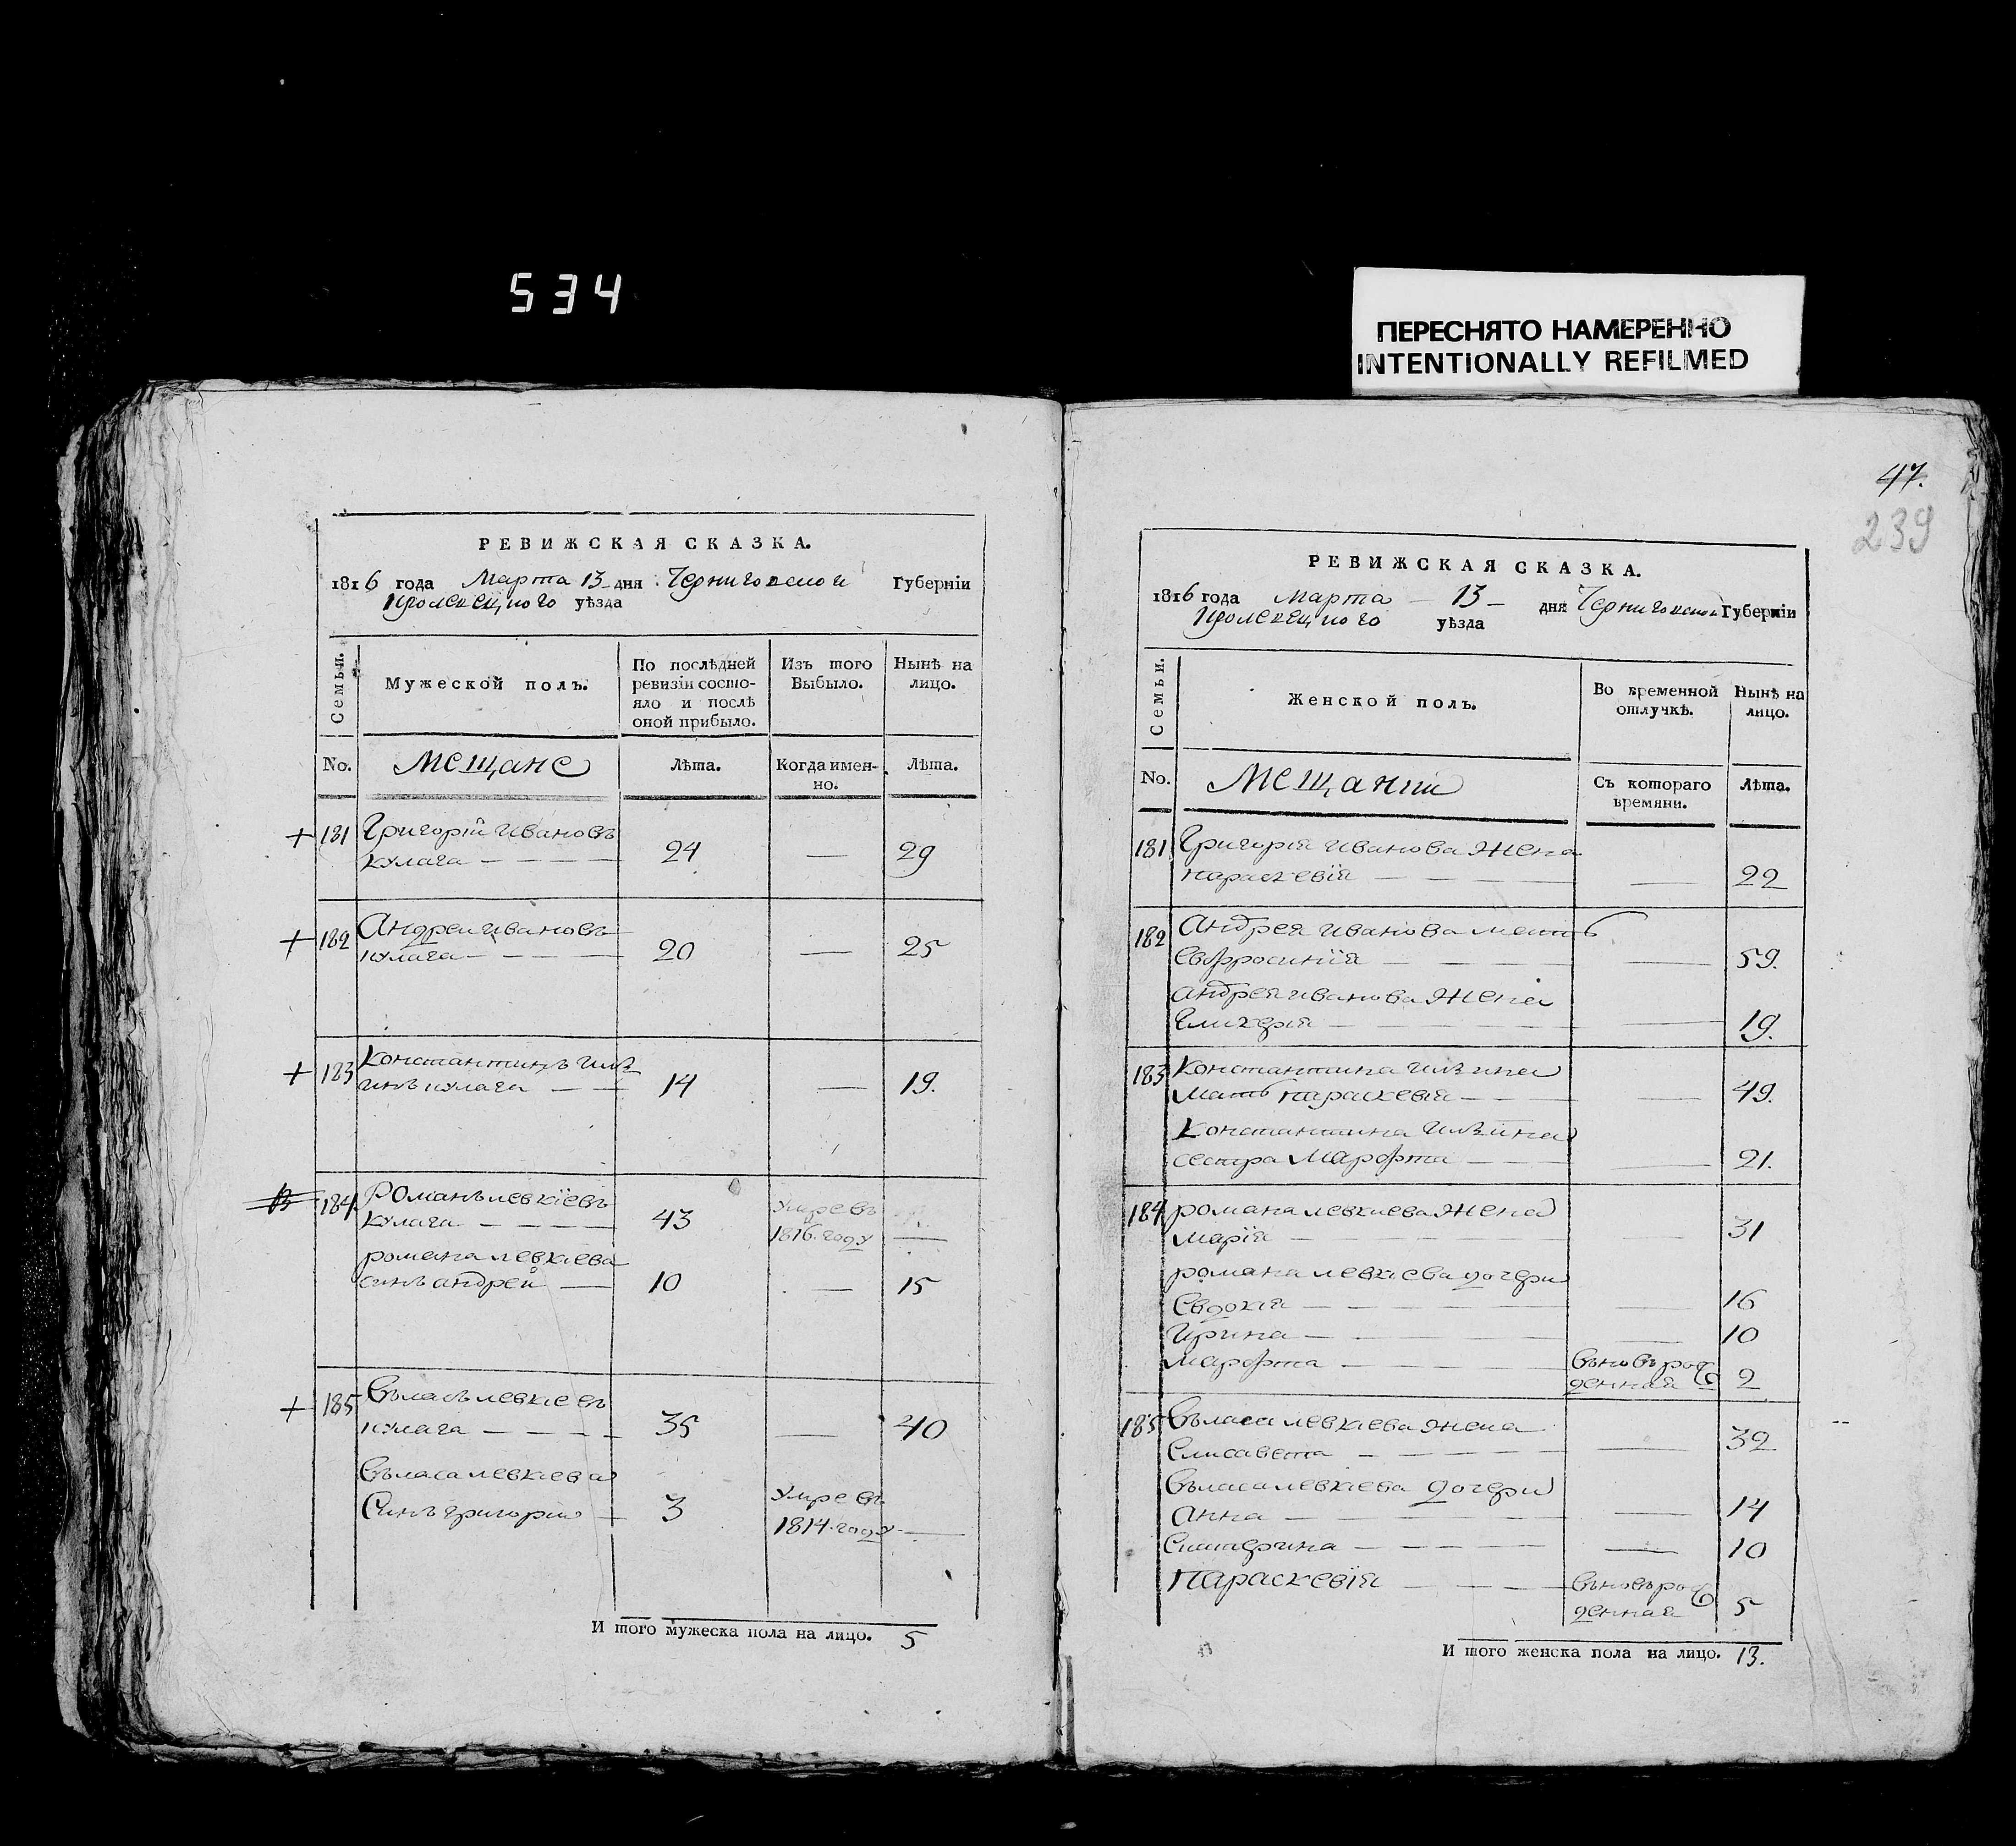 534
ПЕРЕСНЯТО НАМЕРЕННО
INTENTIONALLY REFILMED
РЕВИЖСКАЯ СКАЗКА.
1816 года Марта 13 дня Черниговской Губерніи
Кролевецкого уѣзда
Семьи.
Мужеской полъ.
По послѣдней
ревизіи состо-
яло и послѣ
оной прибыло.
Изъ того
Выбыло.
Нынѣ на
лицо.
No. Мещане Лѣта. Когда имен- Лѣта.
но.
181 Григорій Ивановъ
кулага — 24 — 29
182 Андреи Ивановъ
кулага — 20 — 25
183 Константинъ Илѣ
инъ кулага — 14 — 19.
184 Романъ левкіевъ Умре въ
кулага — 43 1816. году —
романа левкіева
синъ андрей — 10 — 15
185 Въласъ левкіевъ
кулага — 35 — 40
Въласа левкіева Умре въ
Синъ григории — 3 1814. году —
И того мужеска пола на лицо. 5
47.
239
РЕВИЖСКАЯ СКАЗКА.
1816 года Марта 13 дня Черниговской Губерніи
Кролевецкого уѣзда
Семьи.
Женской полъ.
Во временной
отлучкѣ.
Нынѣ на
лицо.
No. Мещанки Съ котораго Лѣта.
времяни.
181 Григорія Иванова жена
параскевія — 22
182 Андрея Иванова мать
Евфросинія — 59.
андрея Иванова жена
Гликерія — 19.
183 Константина Илѣина
мать параскевія — 49.
Константина Илѣина
сестра Марфта — 21.
184 романа левкіева жена
Марія — 31
романа левкіева дочери
Евдокія — 16
Ирина — 10
Марфта — въновърож
денная 2
185 Въласа левкіева жена
Елисавета — 32
Въласа левкіева дочери
Анна — 14
Екатерина — 10
Параскевія — въновърож
денная 5
И того женска пола на лицо. 13.